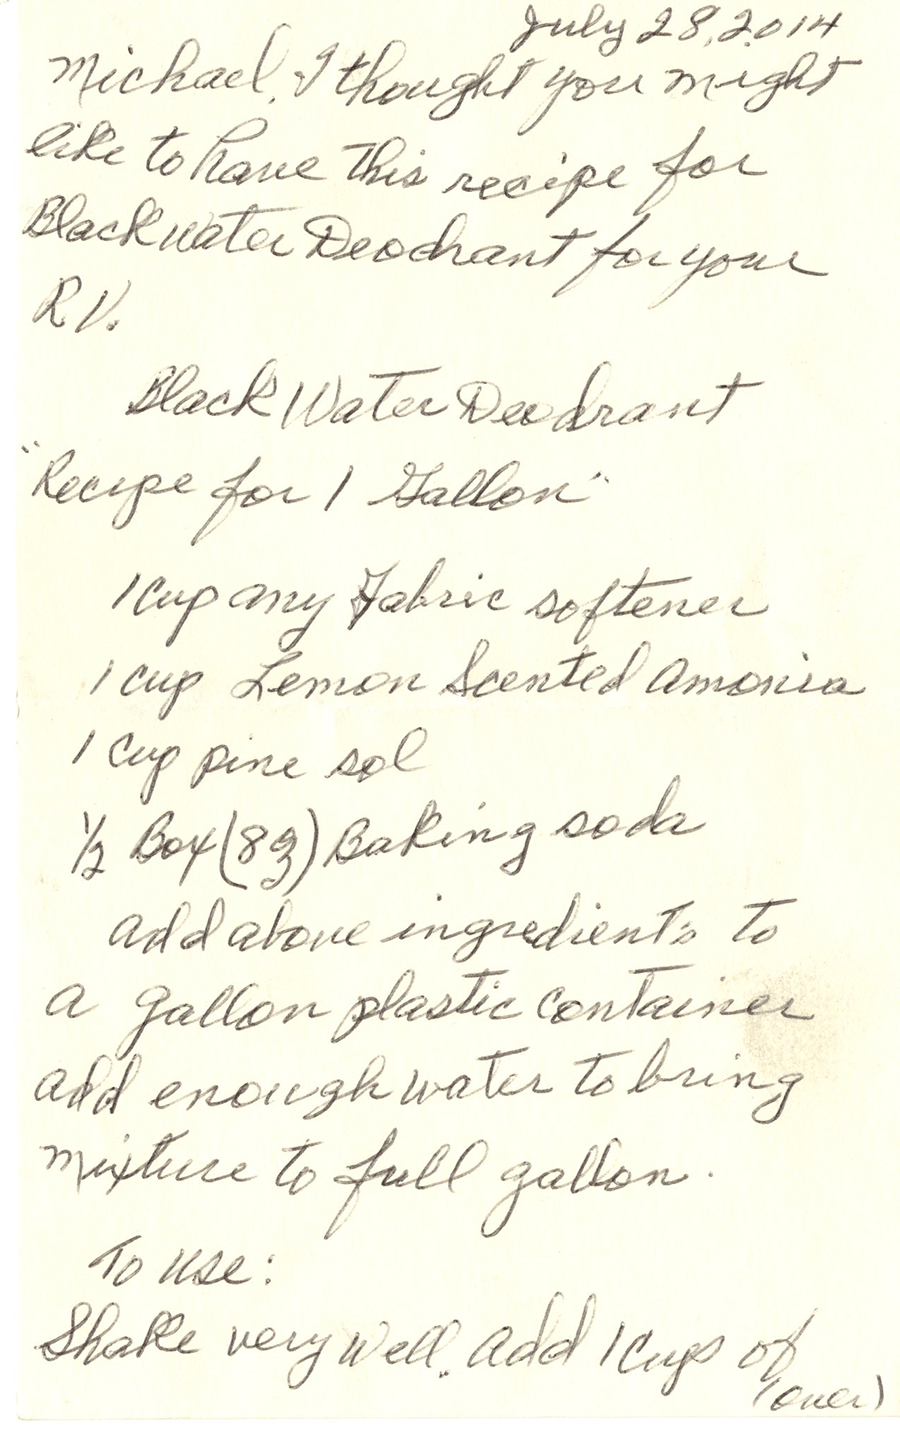 July 28, 2014
Michael, I thought you might
like to have this recipe for
Black water Deodrant for your
RV.
Black Water Deodrant
"Recipe for 1 Gallon"
1 cup any Fabric softener
1 cup Lemon Scented Amonia
1 cup pine sol
1/2 Box (8℥) Baking soda
add above ingredients to
a gallon plastic container
add enough water to bring
mixture to full gallon.
To use:
Shake very well. add 1 cups of
(over)